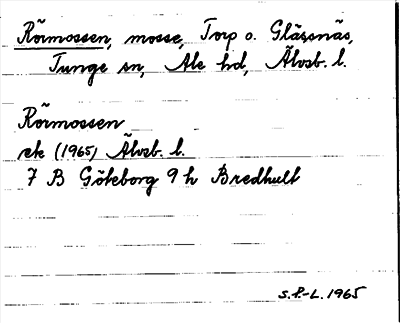 Rörmossen, mosse, Torp o. Glässnäs,
Tunge sn, Ale hd, Älvsb. l.
Rörmossen
ek (1965) Älvsb. l.
7 B Göteborg 9 h Bredhult
S.P-L. 1965